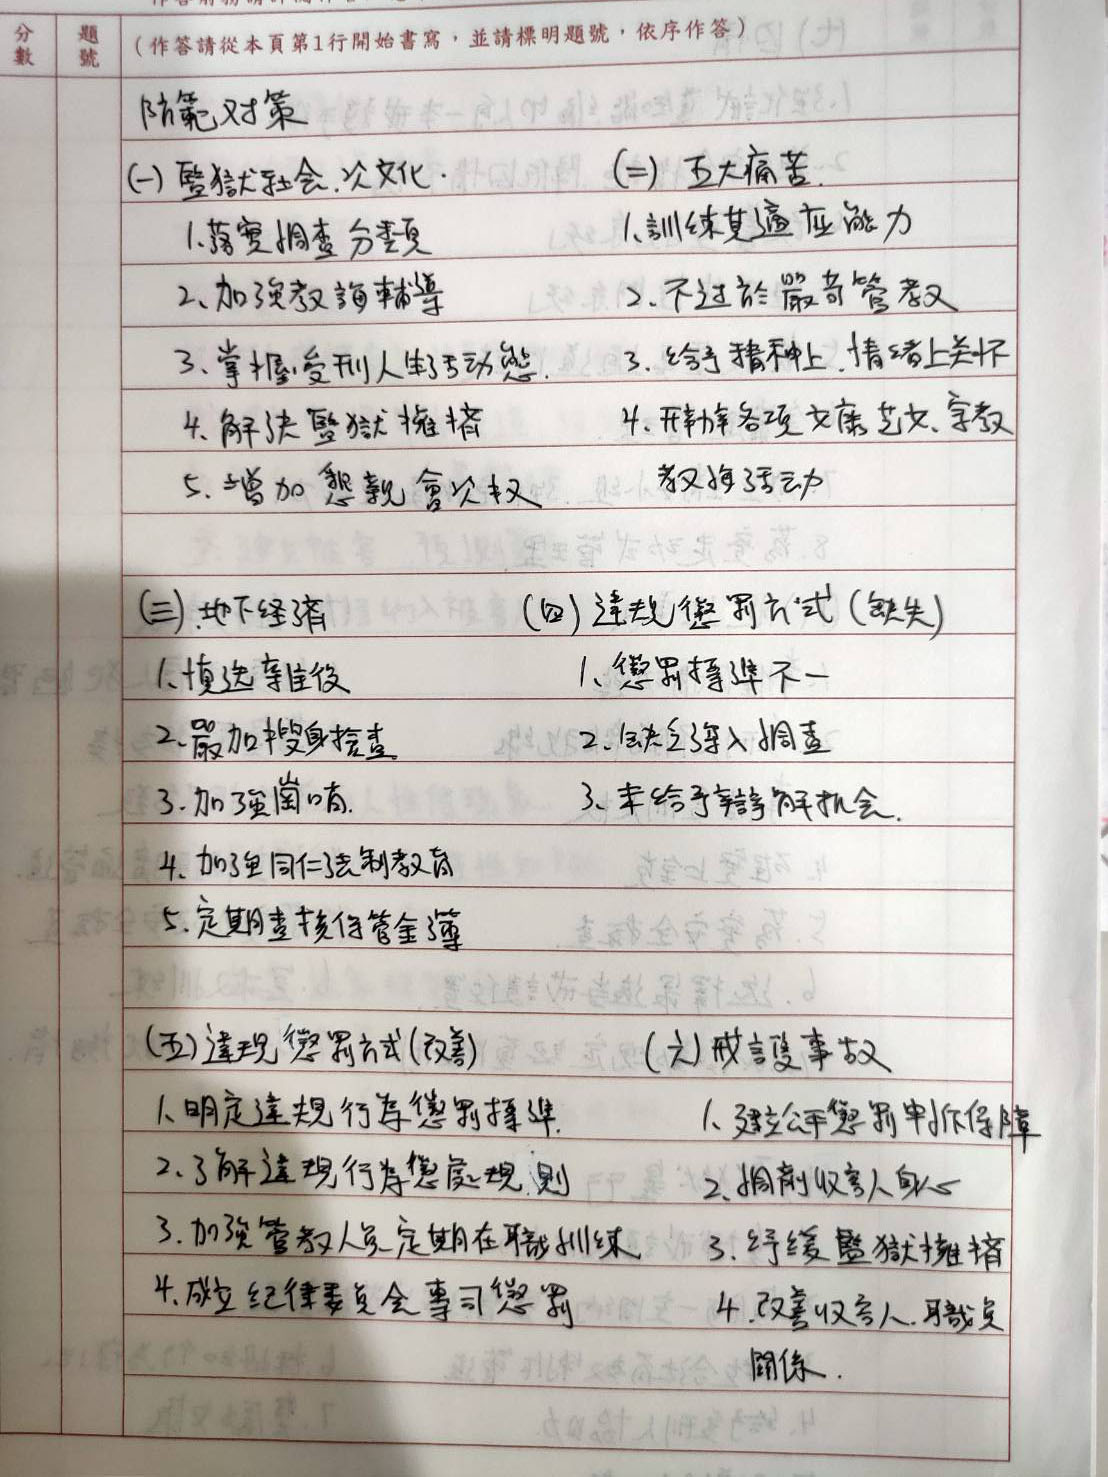 分數
題號
(作答請從本頁第1行開始書寫,並請標明題號,依序作答)
防範对策
(一) 監獄社会.次文化.
(二) 五大痛苦.
1.落實調查分類
1.訓練其適应能力
2、加強教誨輔導
2.不过於嚴苛管教
3.掌握受刑人生活动態.
3.給予精神上.情緒上关怀
4.解決監獄擁擠
4.开辦各項文康艺文、宗教
5.增加懇親會次权
教誨活动
(三) 地下経濟
(四) 違規懲罰方式(缺失)
1.慎选雜役
1.懲罰標準不一
2.嚴加搜身檢查
2.缺乏深入調查
3.加強崗哨.
3.未給予辯解机会.
4.加強同仁法制教育
5.定期查核保管金簿
(五) 違規懲罰方式(改善)
(六) 戒護事故
1.明定違規行為懲罰標準.
1.建立公平懲罰申訴保障
2.了解違規行為懲處規則
2.調劑收容人身心
3.加強管教人員定期在職訓練
3.紓緩監獄擁擠
4.成立紀律委員会專司懲罰
4.改善收容人.職員
関係.